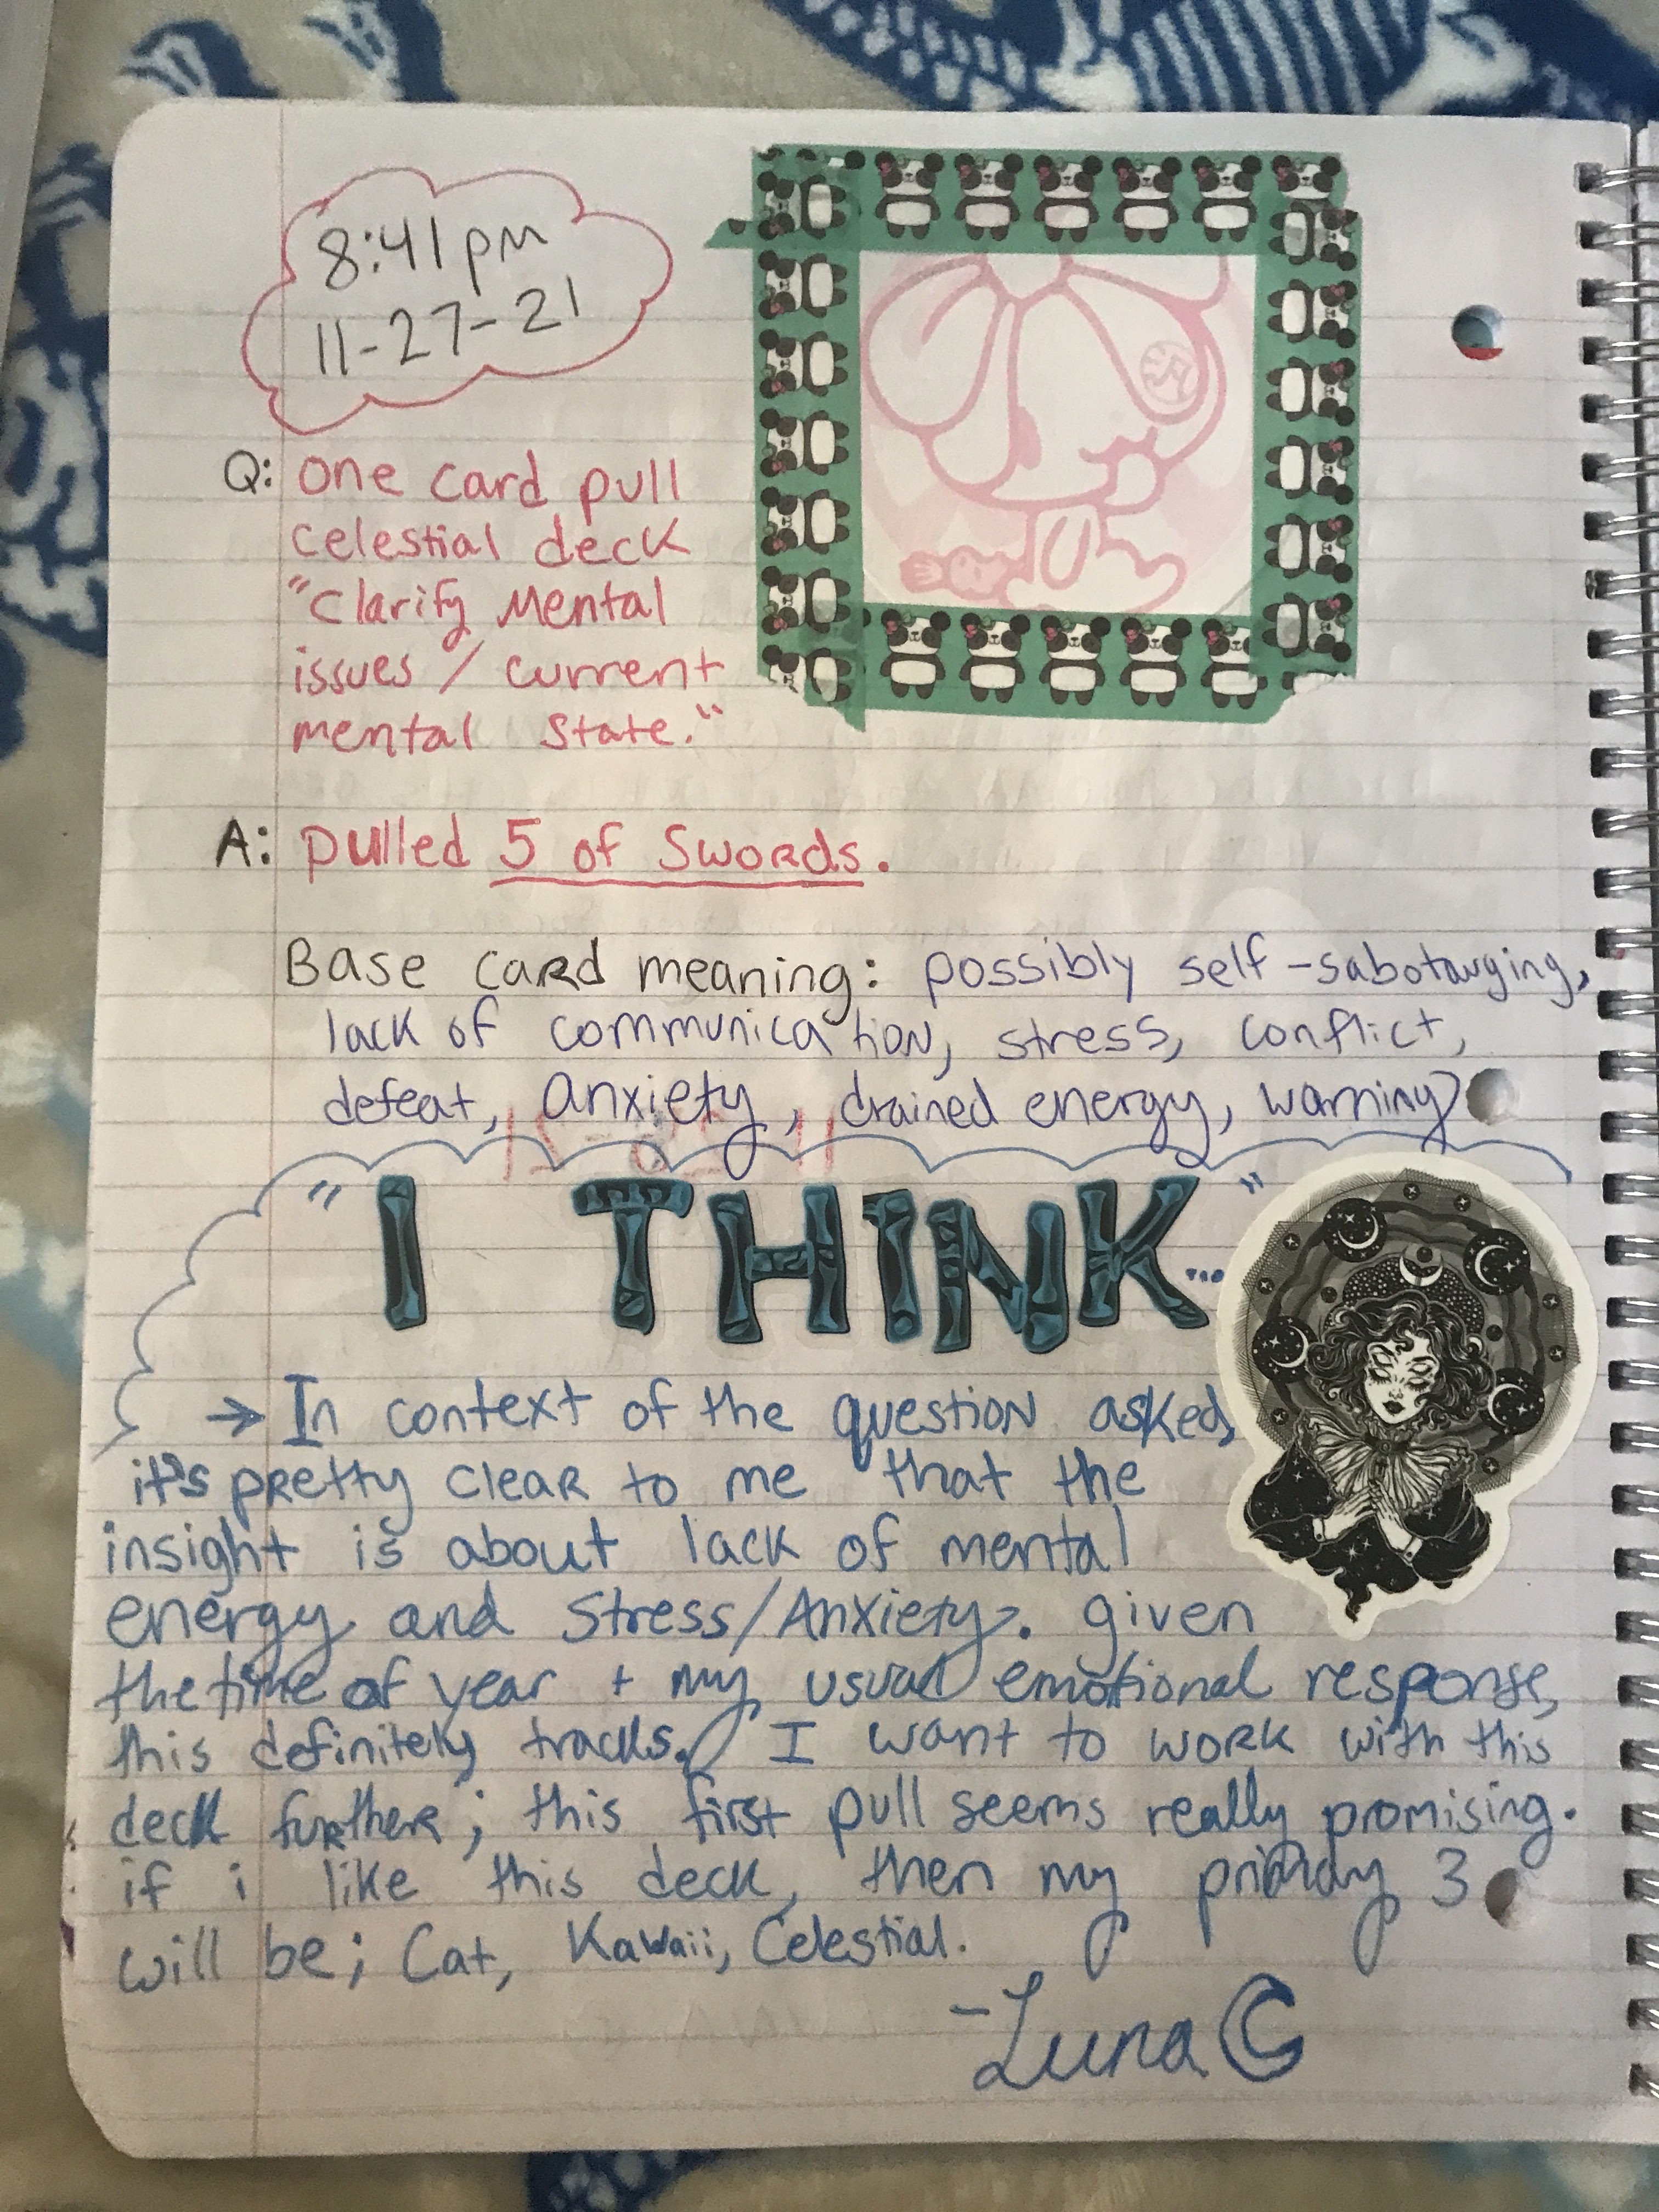 8:41pm
11-27-21
Q: One card pull
celestial deck
"Clarify Mental
issues / current
mental state."
A: pulled 5 of Swords.
Base card meaning: possibly self-sabotauging,
lack of communication, stress, conflict,
defeat, Anxiety, drained energy, warning?
"I THINK..."
→ In context of the question asked,
it's pretty clear to me that the
insight is about lack of mental
energy and Stress/Anxiety. given
the time of year + my usual emotional response,
this definitely tracks. I want to work with this
deck further; this first pull seems really promising.
if i like this deck, then my primary 3
will be; Cat, Kawaii, Celestial.
-Luna